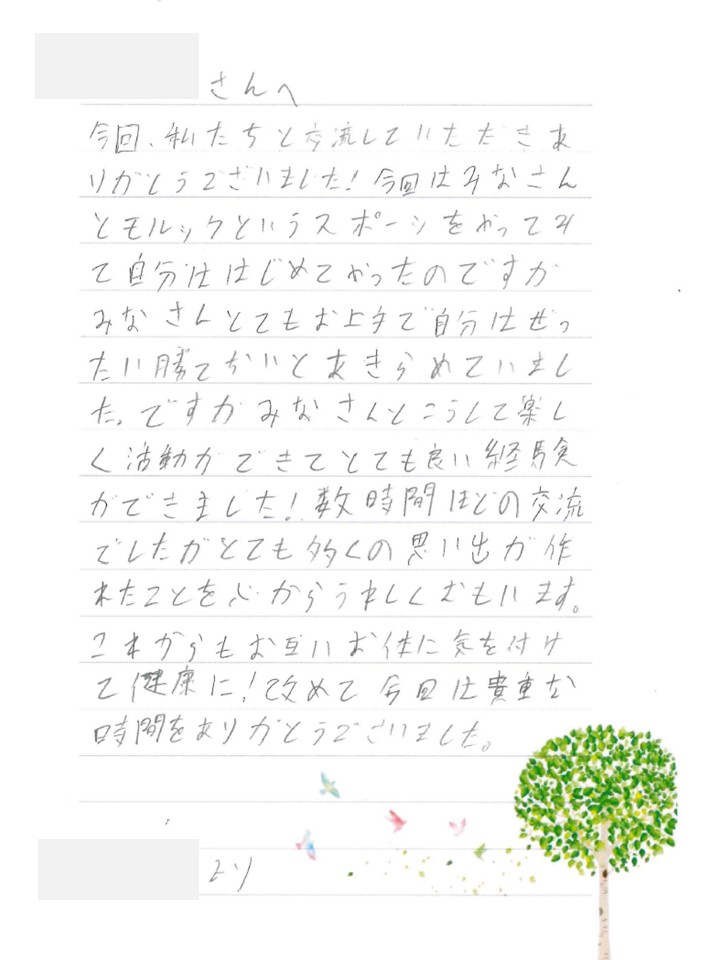 さんへ
今回、私たちと交流していただきあ
りがとうございました！今回はみなさん
とモルックというスポーツをやってみ
て自分ははじめてやったのですが
みなさんとてもお上手で自分はぜっ
たい勝てないとあきらめていまし
た。ですがみなさんとこうして楽し
く活動ができてとても良い経験
ができました！数時間ほどの交流
でしたがとても多くの思い出が作
れたことを心からうれしくおもいます。
これからもお互いお体に気を付け
て健康に！改めて今回は貴重な
時間をありがとうございました。
より